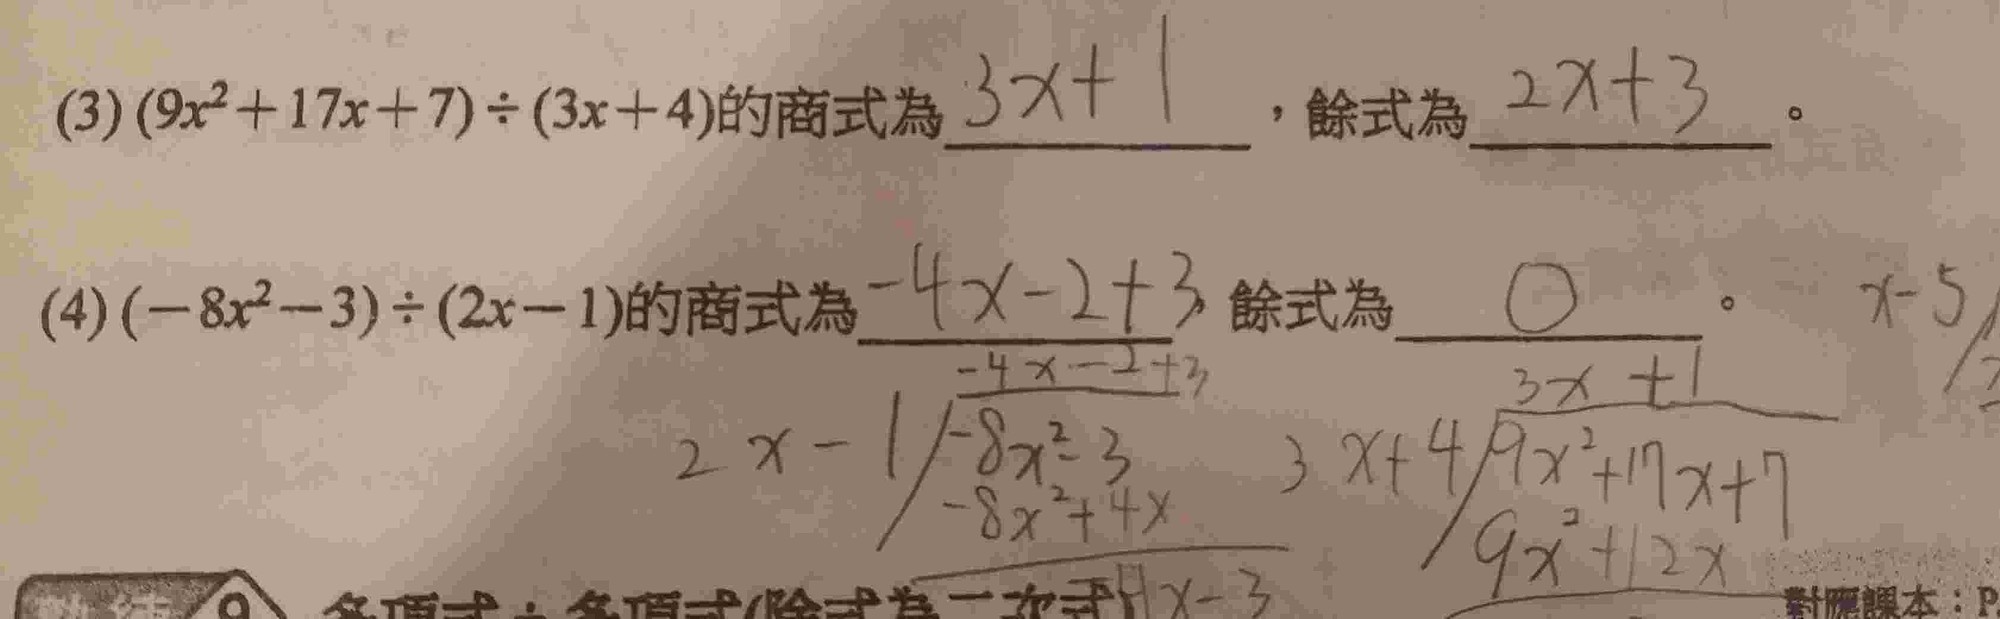 (3) (9x²+17x+7)÷(3x+4)的商式為 3x+1 ，餘式為 2x+3 。
(4) (−8x²−3)÷(2x−1)的商式為 -4x-2+3, 餘式為 0 。 x-5
-4x-2+3 3x+1
2x-1 -8x²-3 3x+4 9x²+17x+7
-8x²+4x 9x²+12x
9 多項式÷多項式(除式為二次式) 4x-3 對應課本：P.